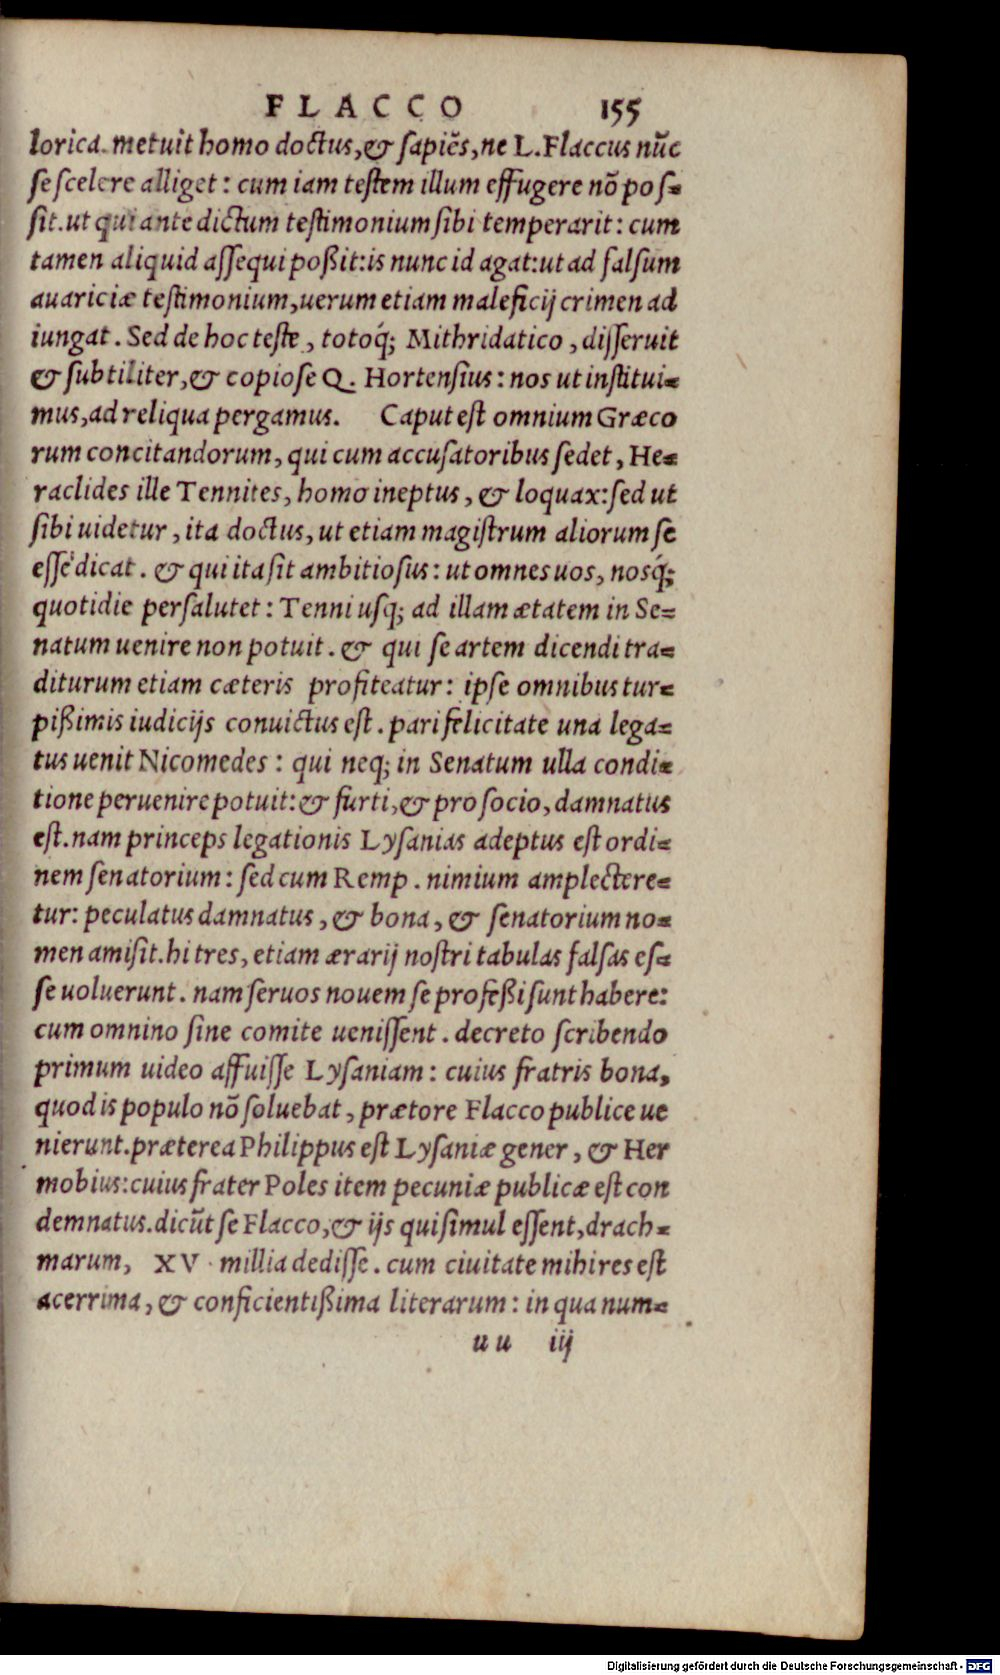 FLACCO 155
lorica. metuit homo doctus, & sapiẽs, ne L. Flaccus nũc
se scelere alliget: cum iam testem illum effugere nõ pos-
sit. ut qui ante dictum testimonium sibi temperarit: cum
tamen aliquid assequi poßit: is nunc id agat: ut ad falsum
auariciæ testimonium, uerum etiam maleficij crimen ad
iungat. Sed de hoc teste, totoq́; Mithridatico, disseruit
& subtiliter, & copiose Q. Hortensius: nos ut institui-
mus, ad reliqua pergamus. Caput est omnium Græco
rum concitandorum, qui cum accusatoribus sedet, He-
raclides ille Tennites, homo ineptus, & loquax: sed ut
sibi uidetur, ita doctus, ut etiam magistrum aliorum se
esse dicat. & qui ita sit ambitiosus: ut omnes uos, nosq́;
quotidie persalutet: Tenni usq; ad illam ætatem in Se-
natum uenire non potuit. & qui se artem dicendi tra-
diturum etiam cæteris profiteatur: ipse omnibus tur-
pißimis iudicijs conuictus est. pari felicitate una lega-
tus uenit Nicomedes: qui neq; in Senatum ulla condi-
tione peruenire potuit: & furti, & pro socio, damnatus
est. nam princeps legationis Lysanias adeptus est ordi-
nem senatorium: sed cum Remp. nimium amplectere-
tur: peculatus damnatus, & bona, & senatorium no-
men amisit. hi tres, etiam ærarij nostri tabulas falsas es-
se uoluerunt. nam seruos nouem se profeßi sunt habere:
cum omnino sine comite uenissent. decreto scribendo
primum uideo affuisse Lysaniam: cuius fratris bona,
quod is populo nõ soluebat, prætore Flacco publice ue
nierunt. præterea Philippus est Lysaniæ gener, & Her
mobius: cuius frater Poles item pecuniæ publicæ est con
demnatus. dicũt se Flacco, & ijs qui simul essent, drach-
marum, XV. millia dedisse. cum ciuitate mihi res est
acerrima, & conficientißima literarum: in qua num-
uu iij
Digitalisierung gefördert durch die Deutsche Forschungsgemeinschaft - DFG